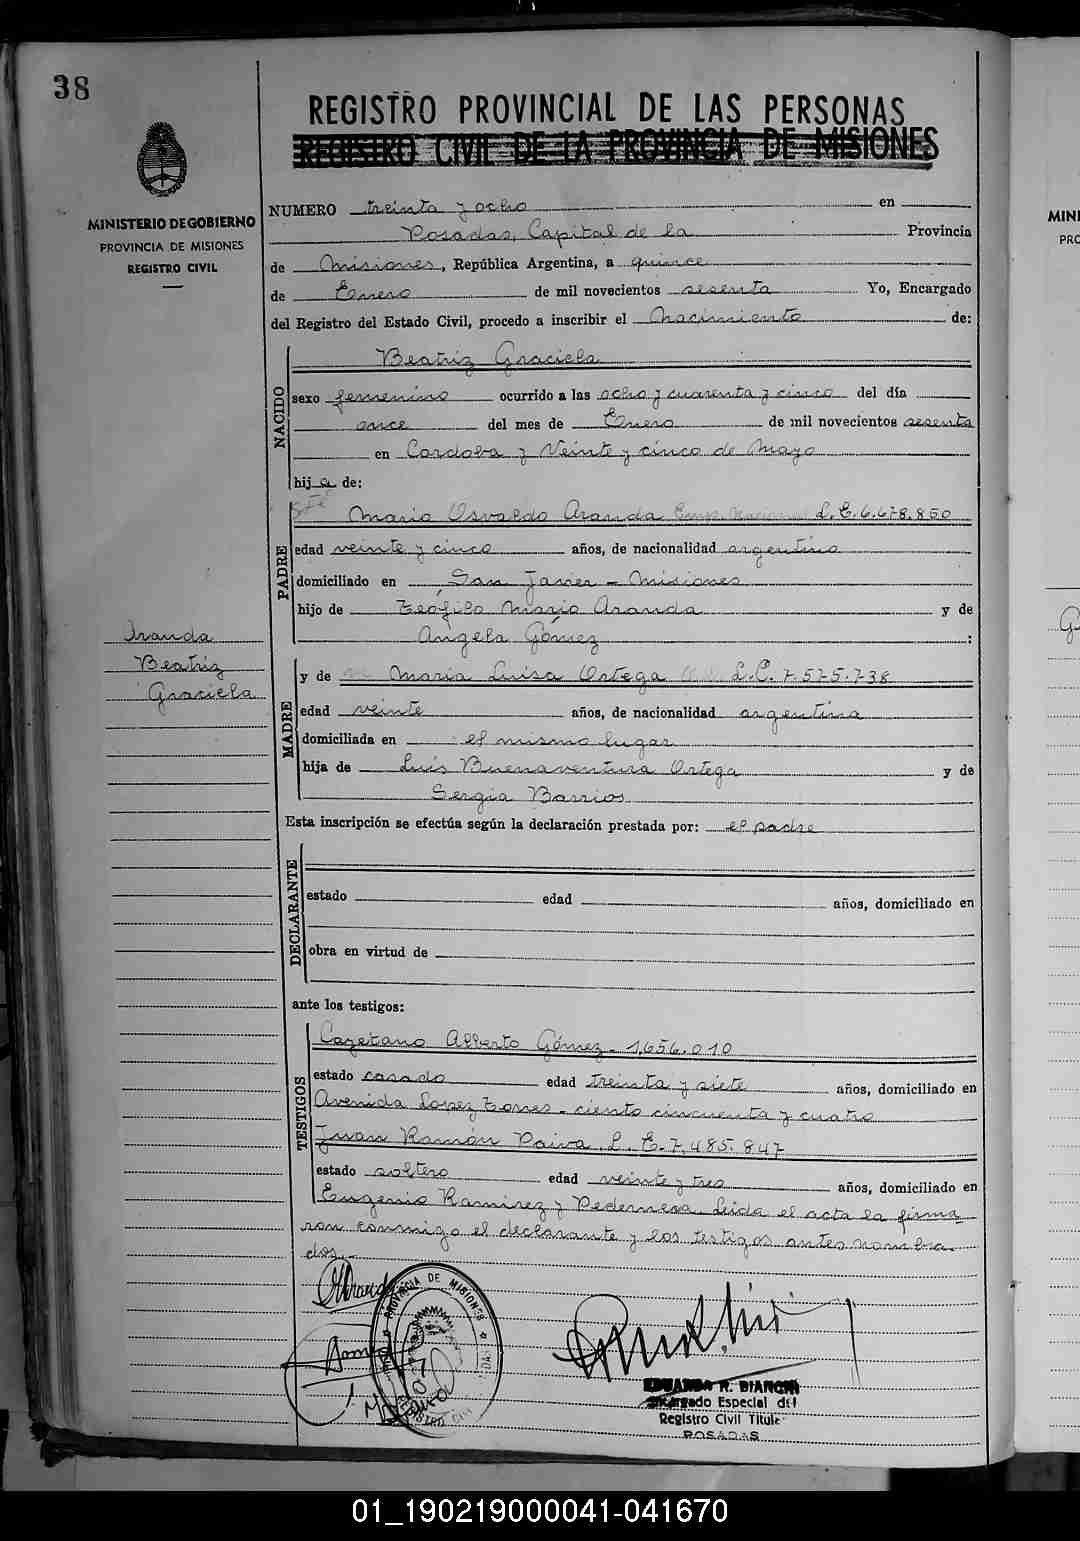 38
REGISTRO PROVINCIAL DE LAS PERSONAS
REGISTRO CIVIL DE LA PROVINCIA DE MISIONES
MINISTERIO DE GOBIERNO
PROVINCIA DE MISIONES
REGISTRO CIVIL
NUMERO treinta y ocho en
Posadas, Capital de la Provincia
de Misiones, República Argentina, a quince
de Enero de mil novecientos sesenta Yo, Encargado
del Registro del Estado Civil, procedo a inscribir el Nacimiento de:
NACIDO
Beatriz Graciela
sexo femenino ocurrido a las ocho y cuarenta y cinco del día
once del mes de Enero de mil novecientos sesenta
en Cordoba y Veinte y cinco de Mayo
hija de:
PADRE
Mario Osvaldo Aranda L.E. 6.678.850
edad veinte y cinco años, de nacionalidad argentino
domiciliado en San Javier - Misiones
hijo de Teófilo Mario Aranda y de
Angela Gómez :
Aranda
Beatriz
Graciela
MADRE
y de María Luisa Ortega L.C. 7.575.738
edad veinte años, de nacionalidad argentina
domiciliada en el mismo lugar
hija de Luis Buenaventura Ortega y de
Sergia Barrios
Esta inscripción se efectúa según la declaración prestada por: el padre
DECLARANTE
estado edad años, domiciliado en
obra en virtud de
ante los testigos:
TESTIGOS
Cayetano Alberto Gómez - 1.656.010
estado casado edad treinta y siete años, domiciliado en
Avenida Lopez Torres - ciento cincuenta y cuatro
Juan Ramón Paiva L. E. 7.485.847
estado soltero edad veinte y tres años, domiciliado en
Eugenio Ramirez y Pedernera. Leida el acta la firma-
ron conmigo el declarante y los testigos antes nombra-
dos.-
PROVINCIA DE MISIONES
REGISTRO CIVIL
EDUARDO R. BIANCHI
Encargado Especial del
Registro Civil Titular
POSADAS
MINI
PRO
01_190219000041-041670